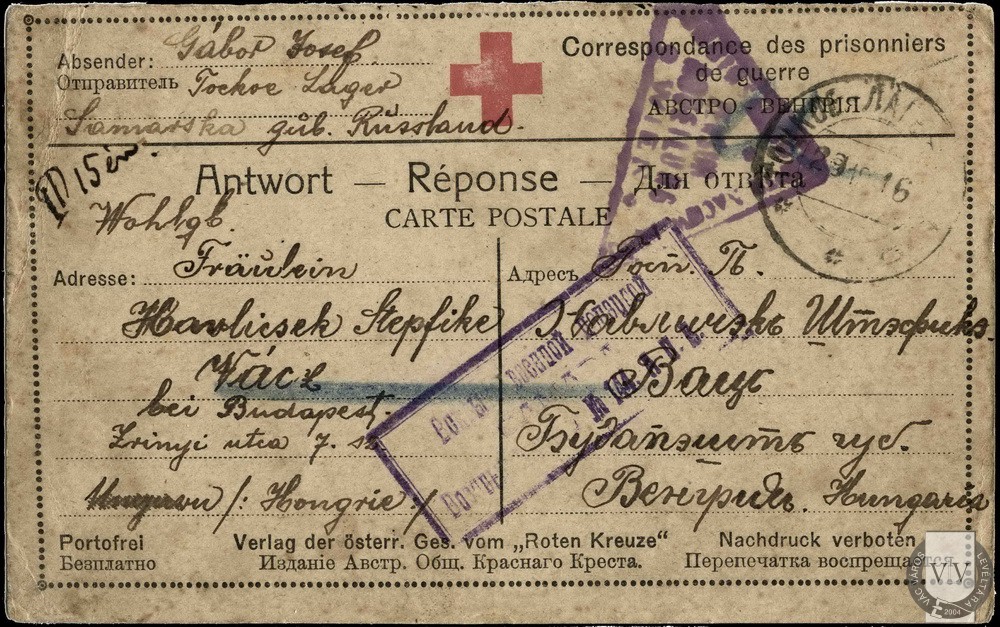 Absender: Gábor Josef
Отправитель Tockoe Lager
Samarska gub. Russland.
Correspondance des prisonniers
de guerre
АВСТРО - ВЕНГРІЯ
15 én.
Antwort — Réponse — Для отвѣта
CARTE POSTALE
Wohlgb.
Adresse: Fräulein
Havlicsek Stepfike
Vácz
bei Budapest.
Zrinyi utca 7. sz
/: Hongrie /
Адресъ Госп. П.
Гавличэкъ Штэфикэ
Вацъ
Будапэштъ губ.
Венгрія. Hungaria
Portofrei
Безплатно
Verlag der österr. Ges. vom „Roten Kreuze“
Изданіе Австр. Общ. Краснаго Креста.
Nachdruck verboten
Перепечатка воспрещается.
VÁC VÁROS LEVÉLTÁRA
VIV
2004